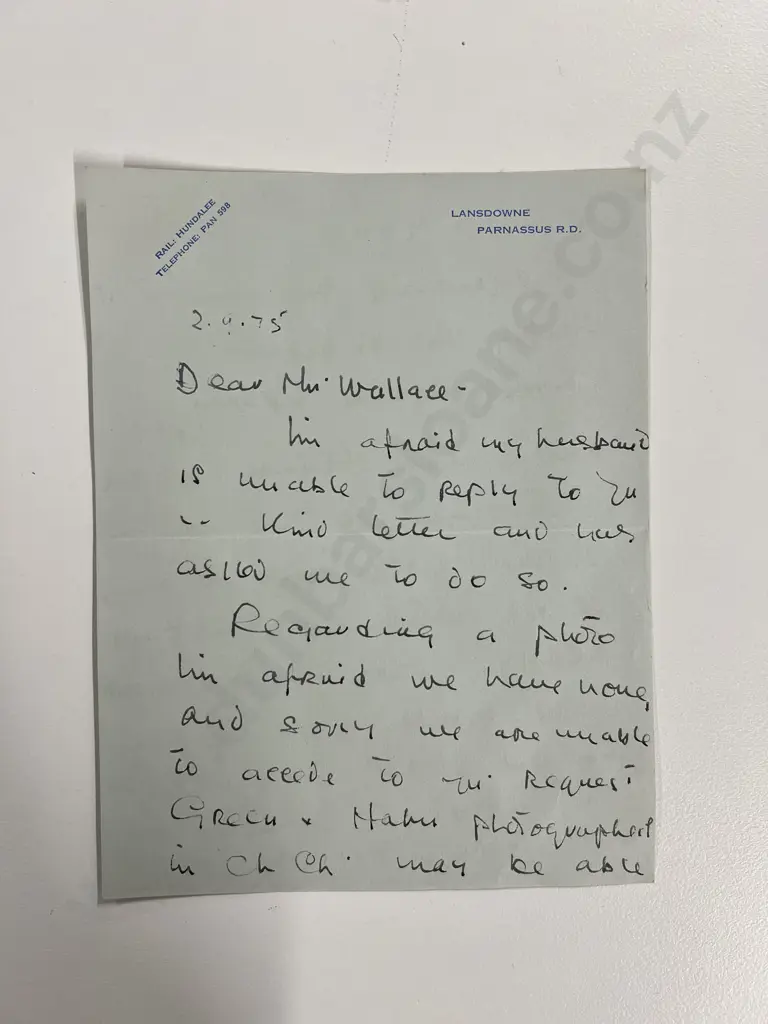 RAIL: HUNDALEE
TELEPHONE: PAN 598
LANSDOWNE
PARNASSUS R.D.
2.9.75
Dear Mr. Wallace-
I'm afraid my husband
is unable to reply to yr
kind letter and has
asked me to do so.
Regarding a photo
I'm afraid we have none,
and sorry we are unable
to accede to yr. request
Green & Hahn photographers
in Ch Ch. may be able